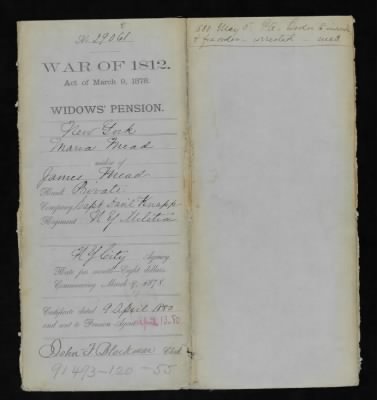 No. 29061
WAR OF 1812.
Act of March 9, 1878.
WIDOWS' PENSION.
New York
Maria Mead
widow of
James Mead
Rank, Private
Company, Capt
Regiment, NY Militia
NY City Agency
Rate per month, Eight dollars.
Commencing March 9, 1878.
Certificate dated 9 April 1880
and sent to Pension Agent April 12. 80
John F. Blackmar Clerk
91 493-120-55
May 5